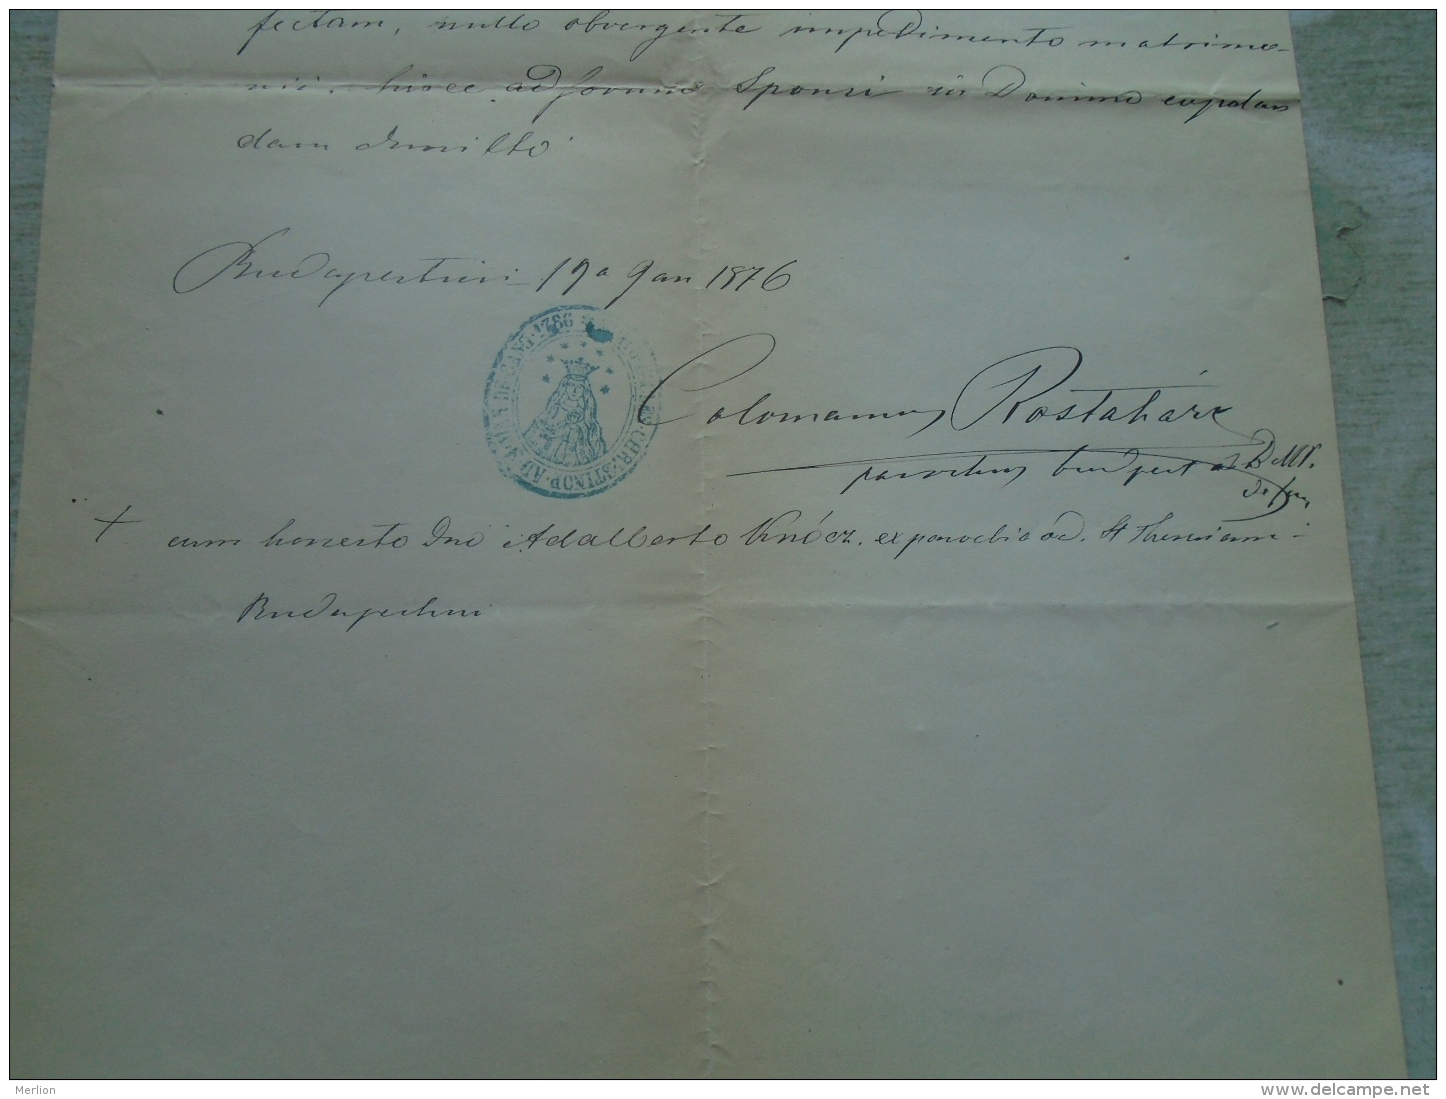 fectam, nullo obvergente impedimento matrimo-
nii, hisce ad forum Sponsi in Domino copulan
dam dimitto
Budapestini 19a Jan 1876
AD V. MAR. DE 1786 CHRISTINOP.
Colomanus Rostaházy
parochus budapest ad B M V.
+ cum honesto Dno Adalberto Knócz. ex parochia ad St Theresiam
Budapestini
Merlion
www.delcampe.net